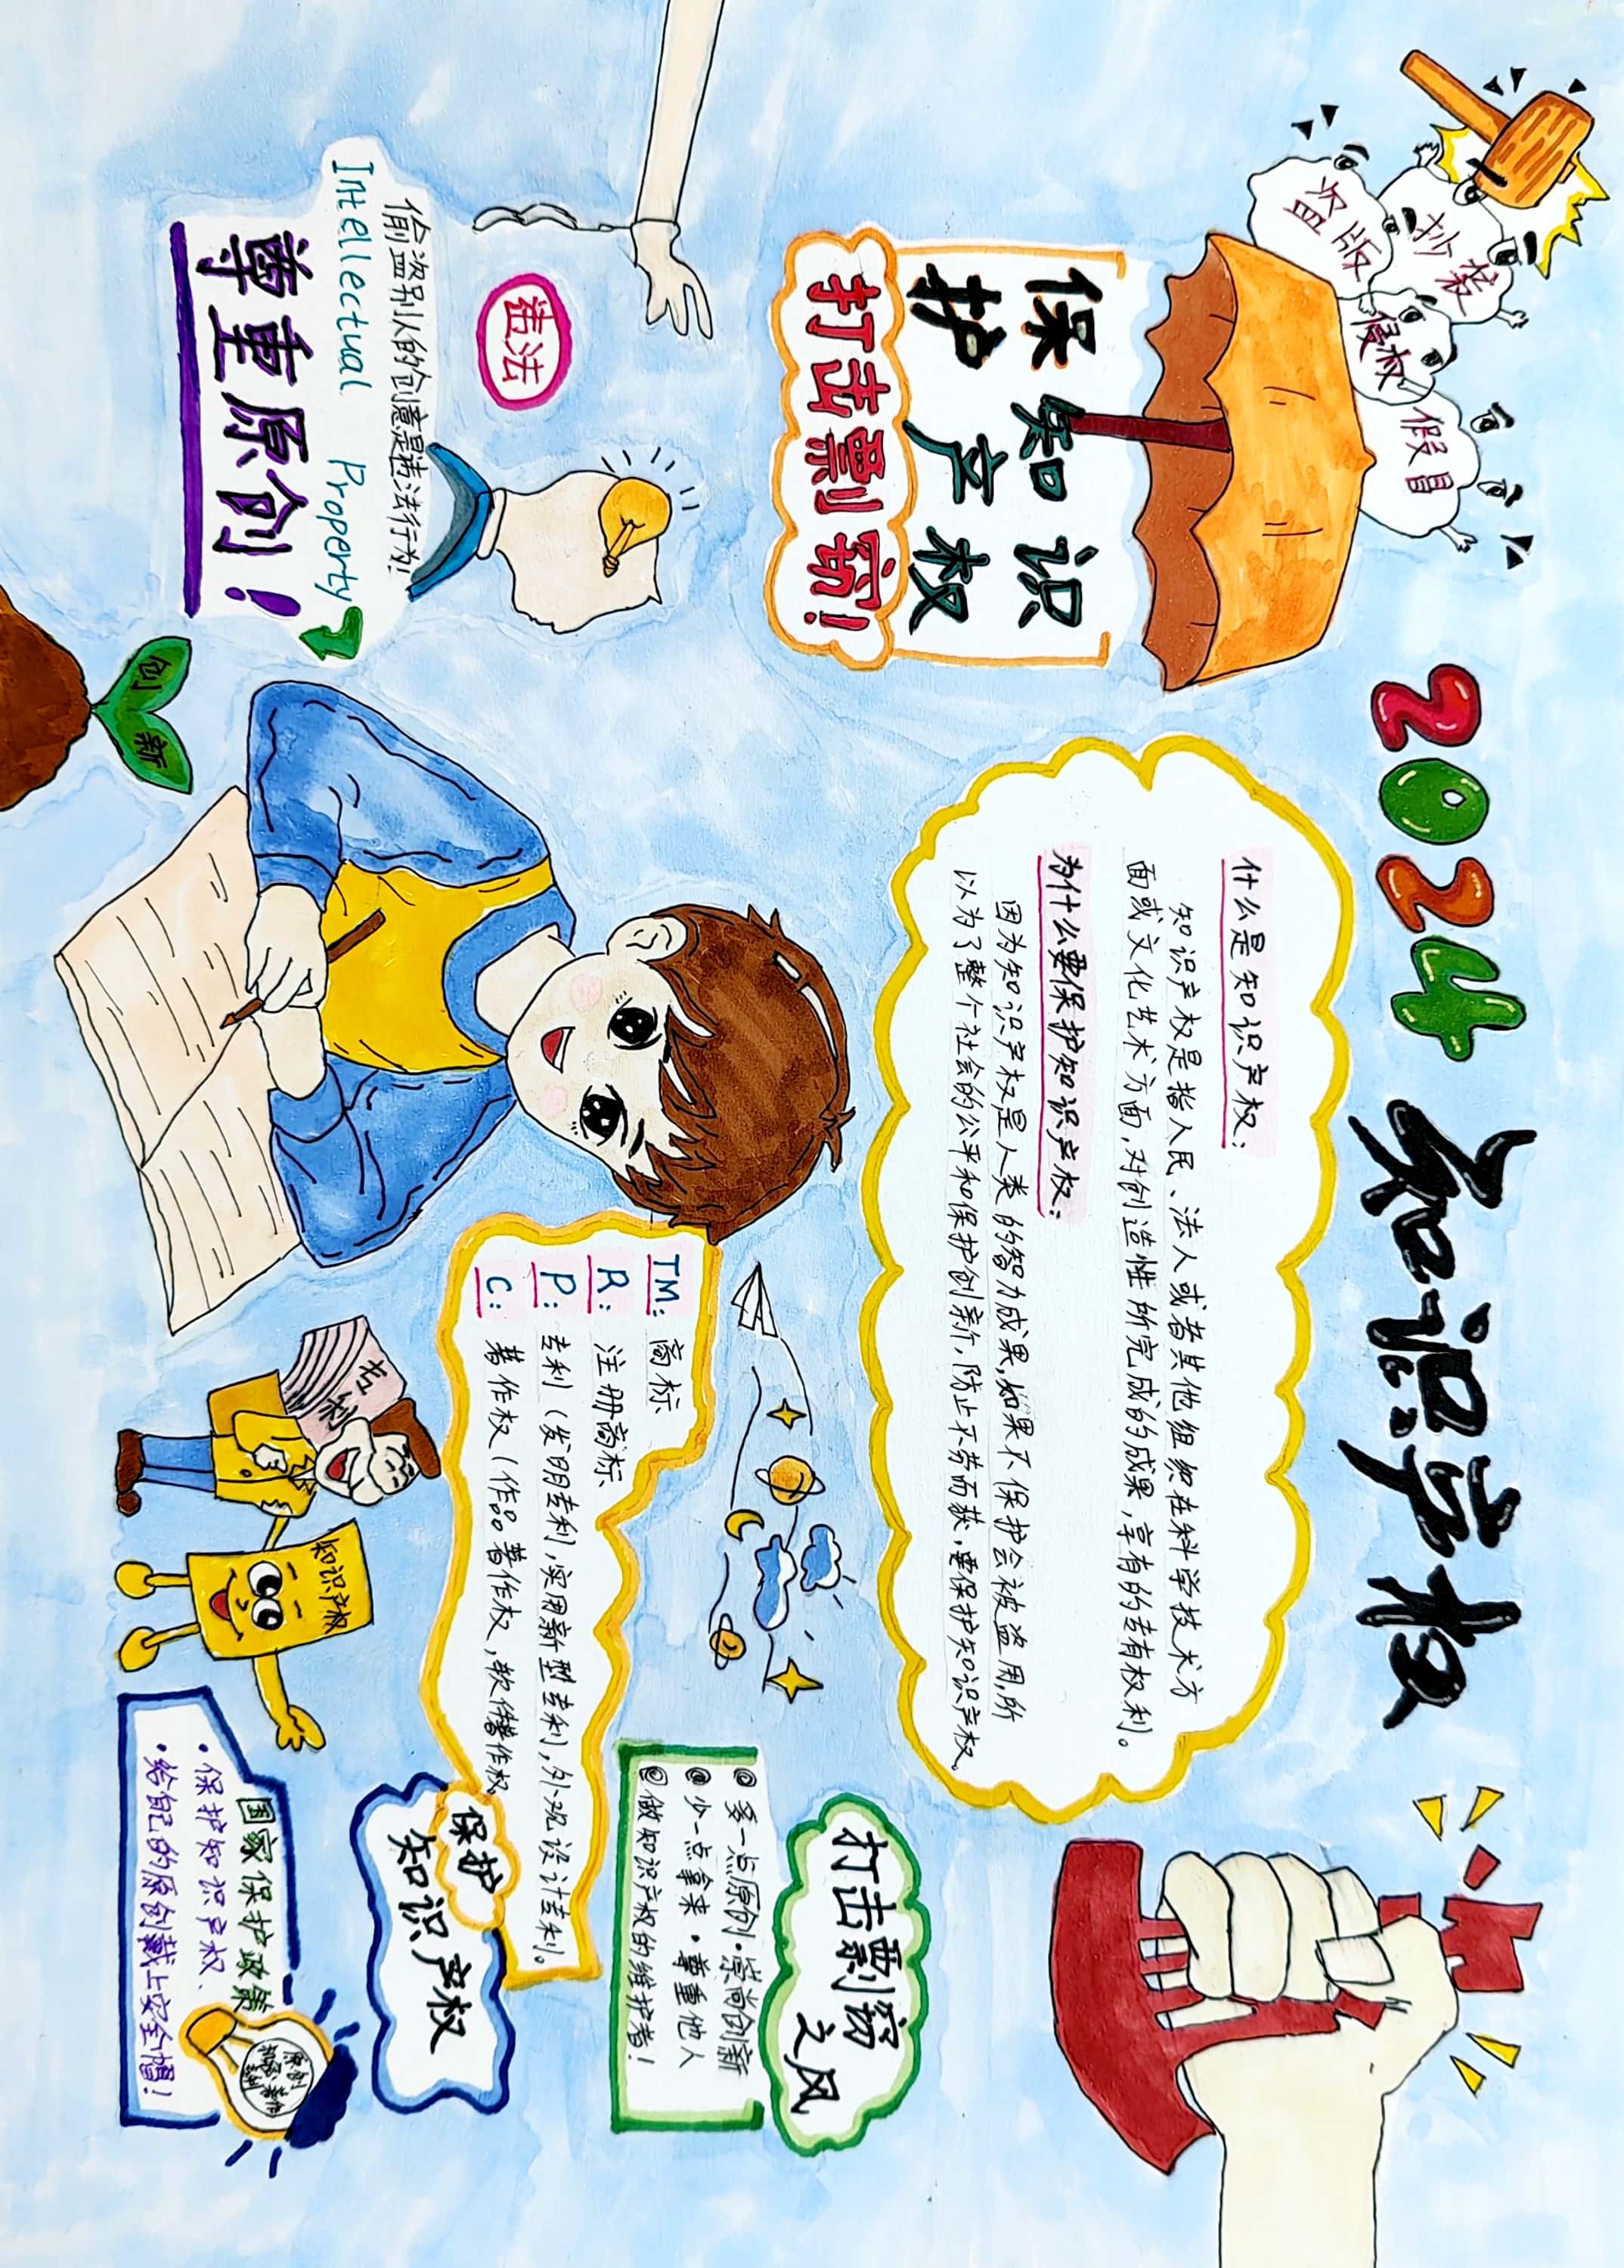 2024 知识产权
盗版
抄袭
侵权
假冒
保 知 识
护 产 权
打击剽窃!
什么是知识产权：
知识产权是指人民、法人或者其他组织在科学技术方
面或文化艺术方面，对创造性所完成的成果，享有的专有权利。
为什么要保护知识产权：
因为知识产权是人类的智力成果，如果不保护会被盗用，所
以为了整个社会的公平和保护创新，防止不劳而获，要保护知识产权。
违法
偷盗别人的创意是违法行为!
Intellectual Property
尊重原创!
创新
TM: 商标
R: 注册商标
P: 专利（发明专利，实用新型专利，外观设计专利。
C: 著作权（作品著作权，软件著作权。
打击剽窃
之风
多一点原创·崇尚创新
少一点拿来·尊重他人
做知识产权的维护者！
专利
知识产权
保护
知识产权
国家保护政策
·保护知识产权、
·给自己的原创戴上安全帽！
原创